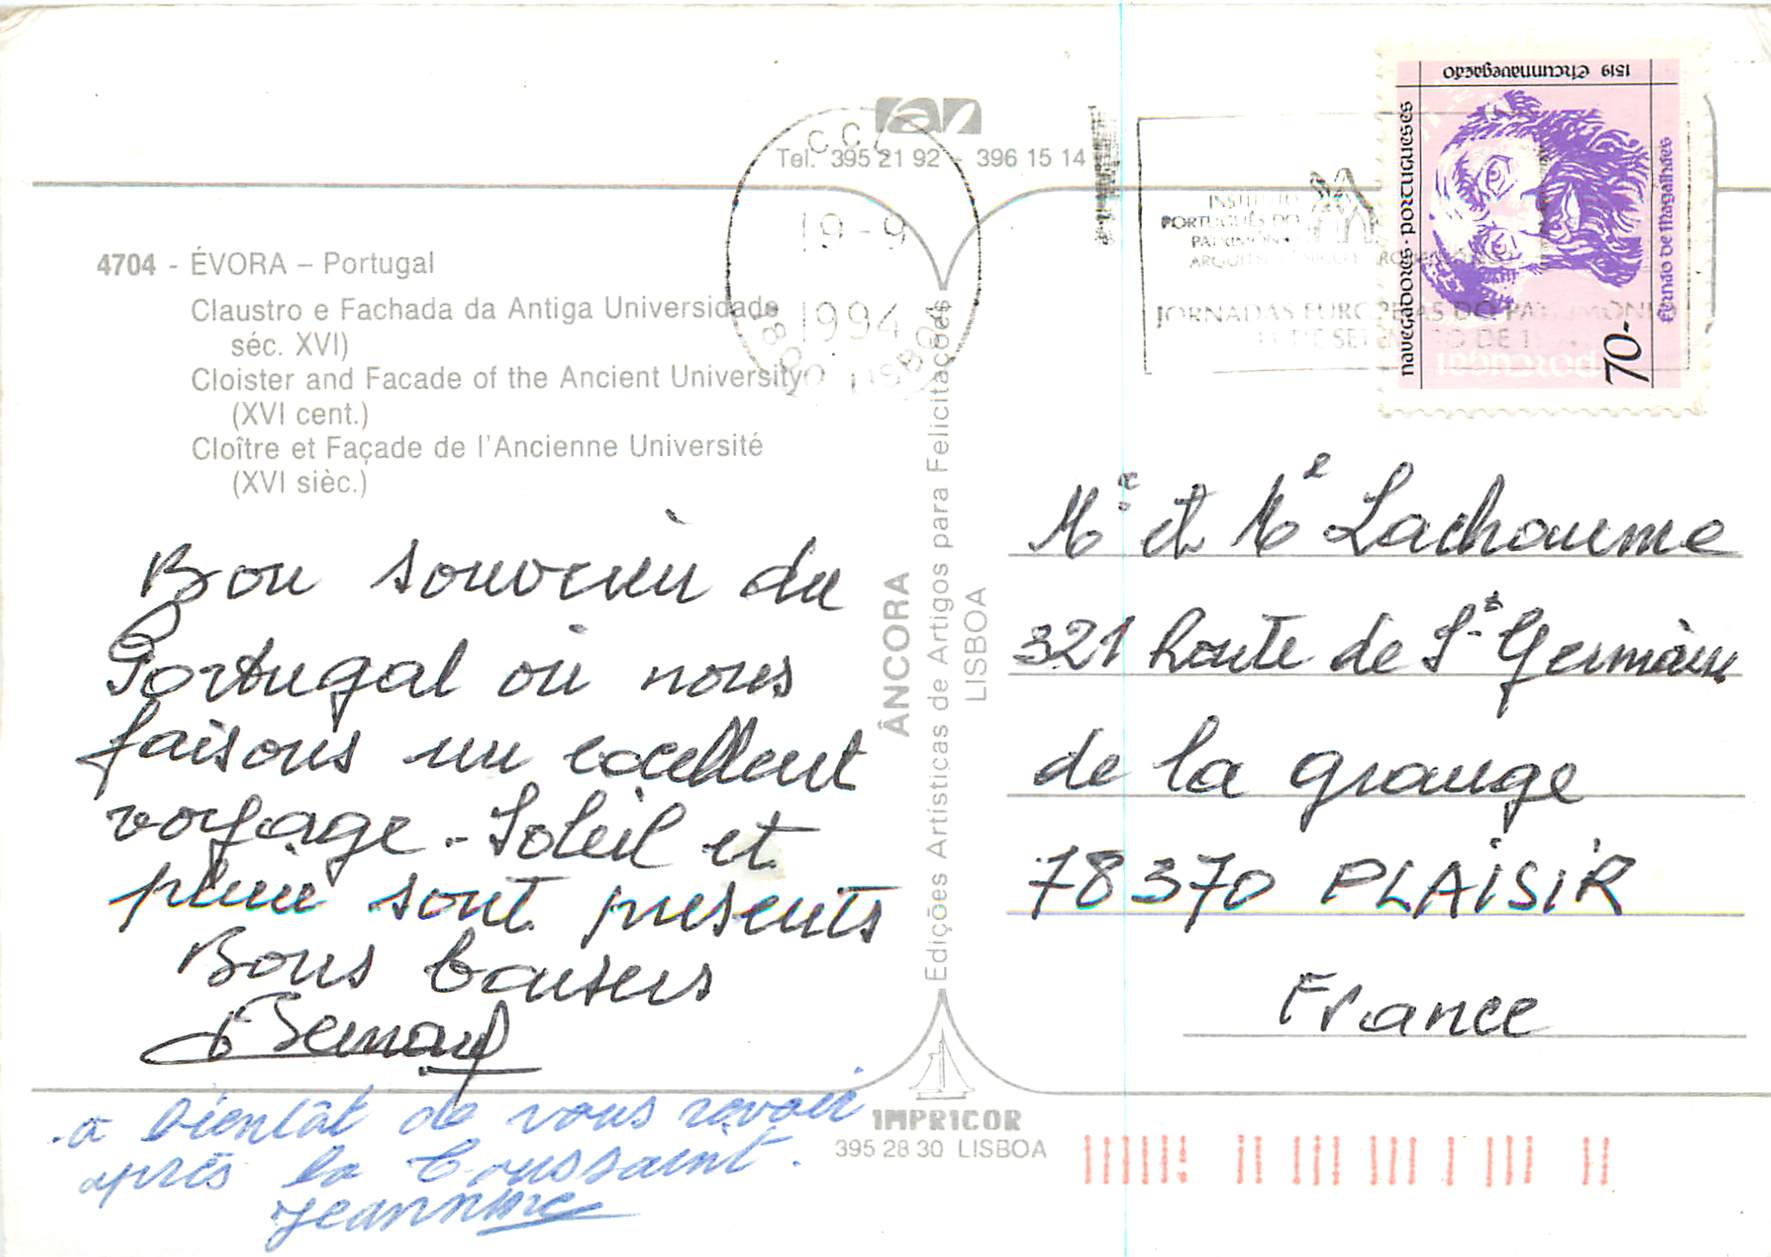 Tel. 395 21 92 - 396 15 14
4704 - ÉVORA – Portugal
Claustro e Fachada da Antiga Universidade
séc. XVI)
Cloister and Facade of the Ancient University
(XVI cent.)
Cloître et Façade de l'Ancienne Université
(XVI sièc.)
Bon souvenir du
Portugal où nous
faisons un excellent
voyage - Soleil et
pluie sont présents
Bons baisers
à bientôt de vous revoir
après la Toussaint.
Jeannine
ÂNCORA
Edições Artísticas de Artigos para Felicitações
LISBOA
IMPRICOR
395 28 30 LISBOA
19-9
1994
1800 LISBOA
INSTITUTO
PORTUGUÊS DO
JORNADAS EUROPEIAS DO PATRIMÓNIO
1519 Circumnavegação
navegadores · portugueses
Fernão de Magalhães
portugal
70-
Mr et Me Lachaume
321 Route de St Germain
de la grange
78370 PLAiSiR
France